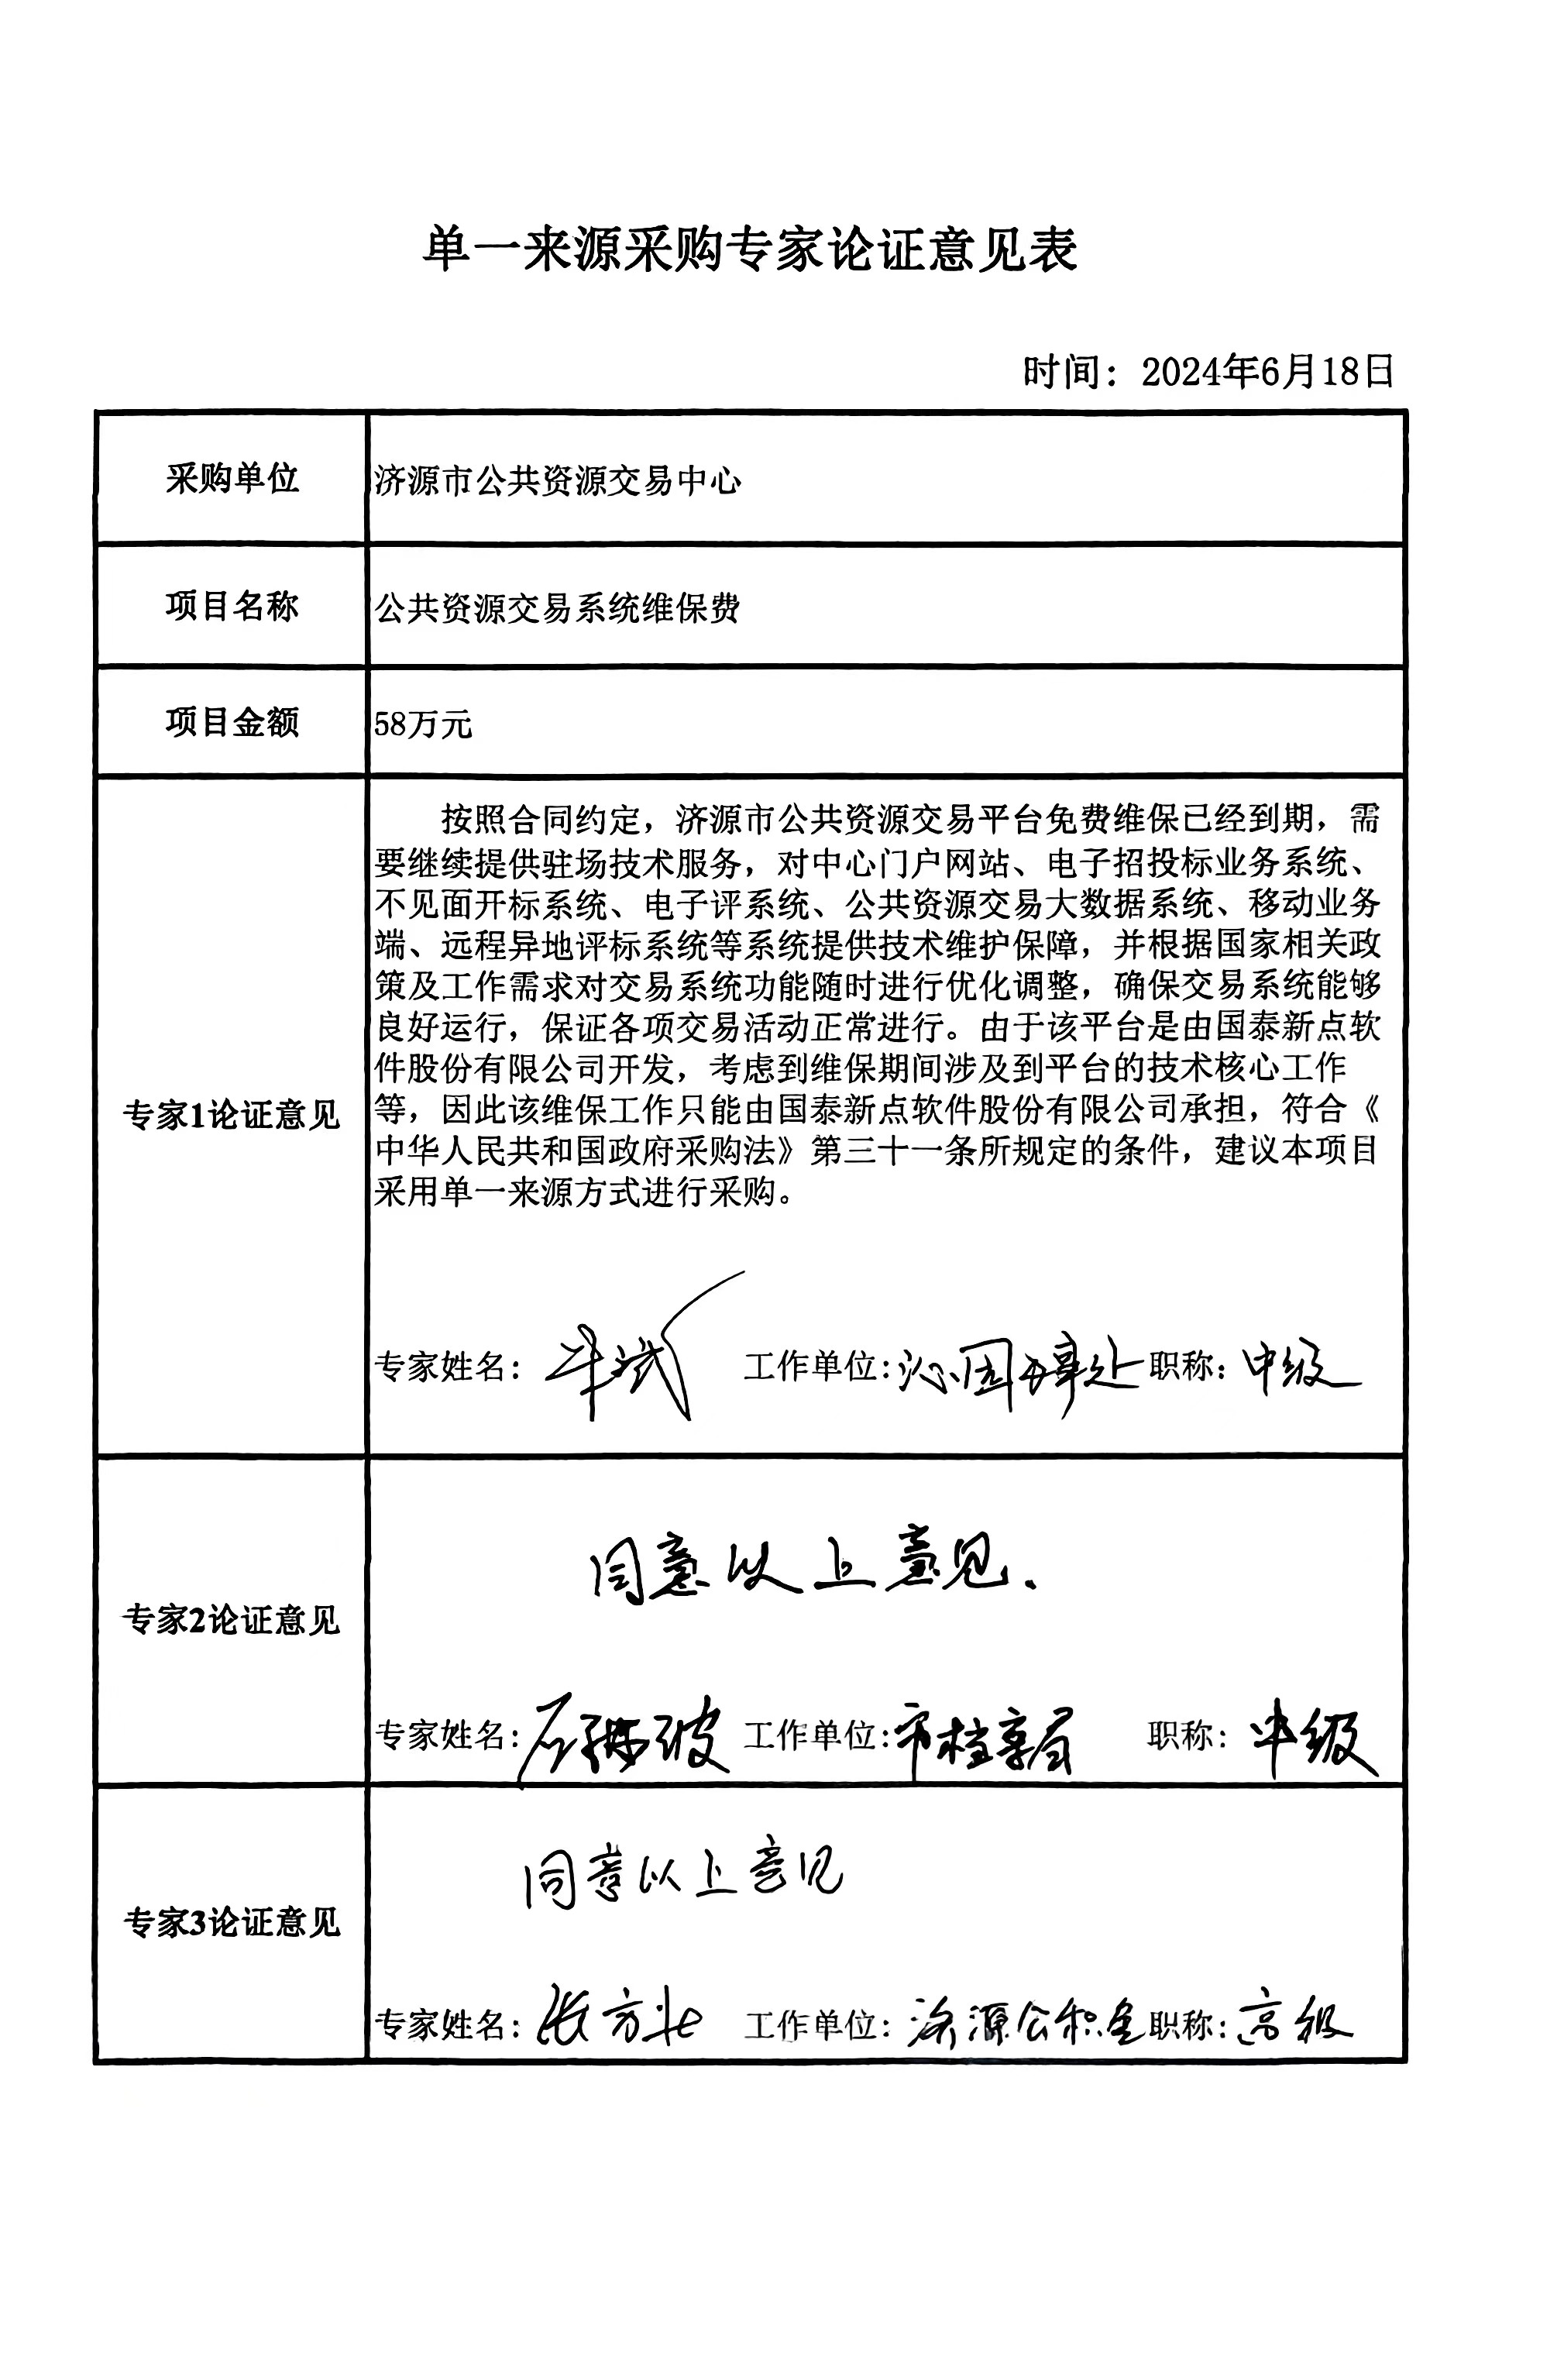 单一来源采购专家论证意见表
时间：2024年6月18日
采购单位
济源市公共资源交易中心
项目名称
公共资源交易系统维保费
项目金额
58万元
专家1论证意见
按照合同约定，济源市公共资源交易平台免费维保已经到期，需
要继续提供驻场技术服务，对中心门户网站、电子招投标业务系统、
不见面开标系统、电子评系统、公共资源交易大数据系统、移动业务
端、远程异地评标系统等系统提供技术维护保障，并根据国家相关政
策及工作需求对交易系统功能随时进行优化调整，确保交易系统能够
良好运行，保证各项交易活动正常进行。由于该平台是由国泰新点软
件股份有限公司开发，考虑到维保期间涉及到平台的技术核心工作
等，因此该维保工作只能由国泰新点软件股份有限公司承担，符合《
中华人民共和国政府采购法》第三十一条所规定的条件，建议本项目
采用单一来源方式进行采购。
专家姓名：牛斌 工作单位：沁园办事处 职称：中级
专家2论证意见
同意以上意见.
专家姓名： 工作单位：市档案局 职称：中级
专家3论证意见
同意以上意见
专家姓名：张方 工作单位：济源公积金 职称：高级